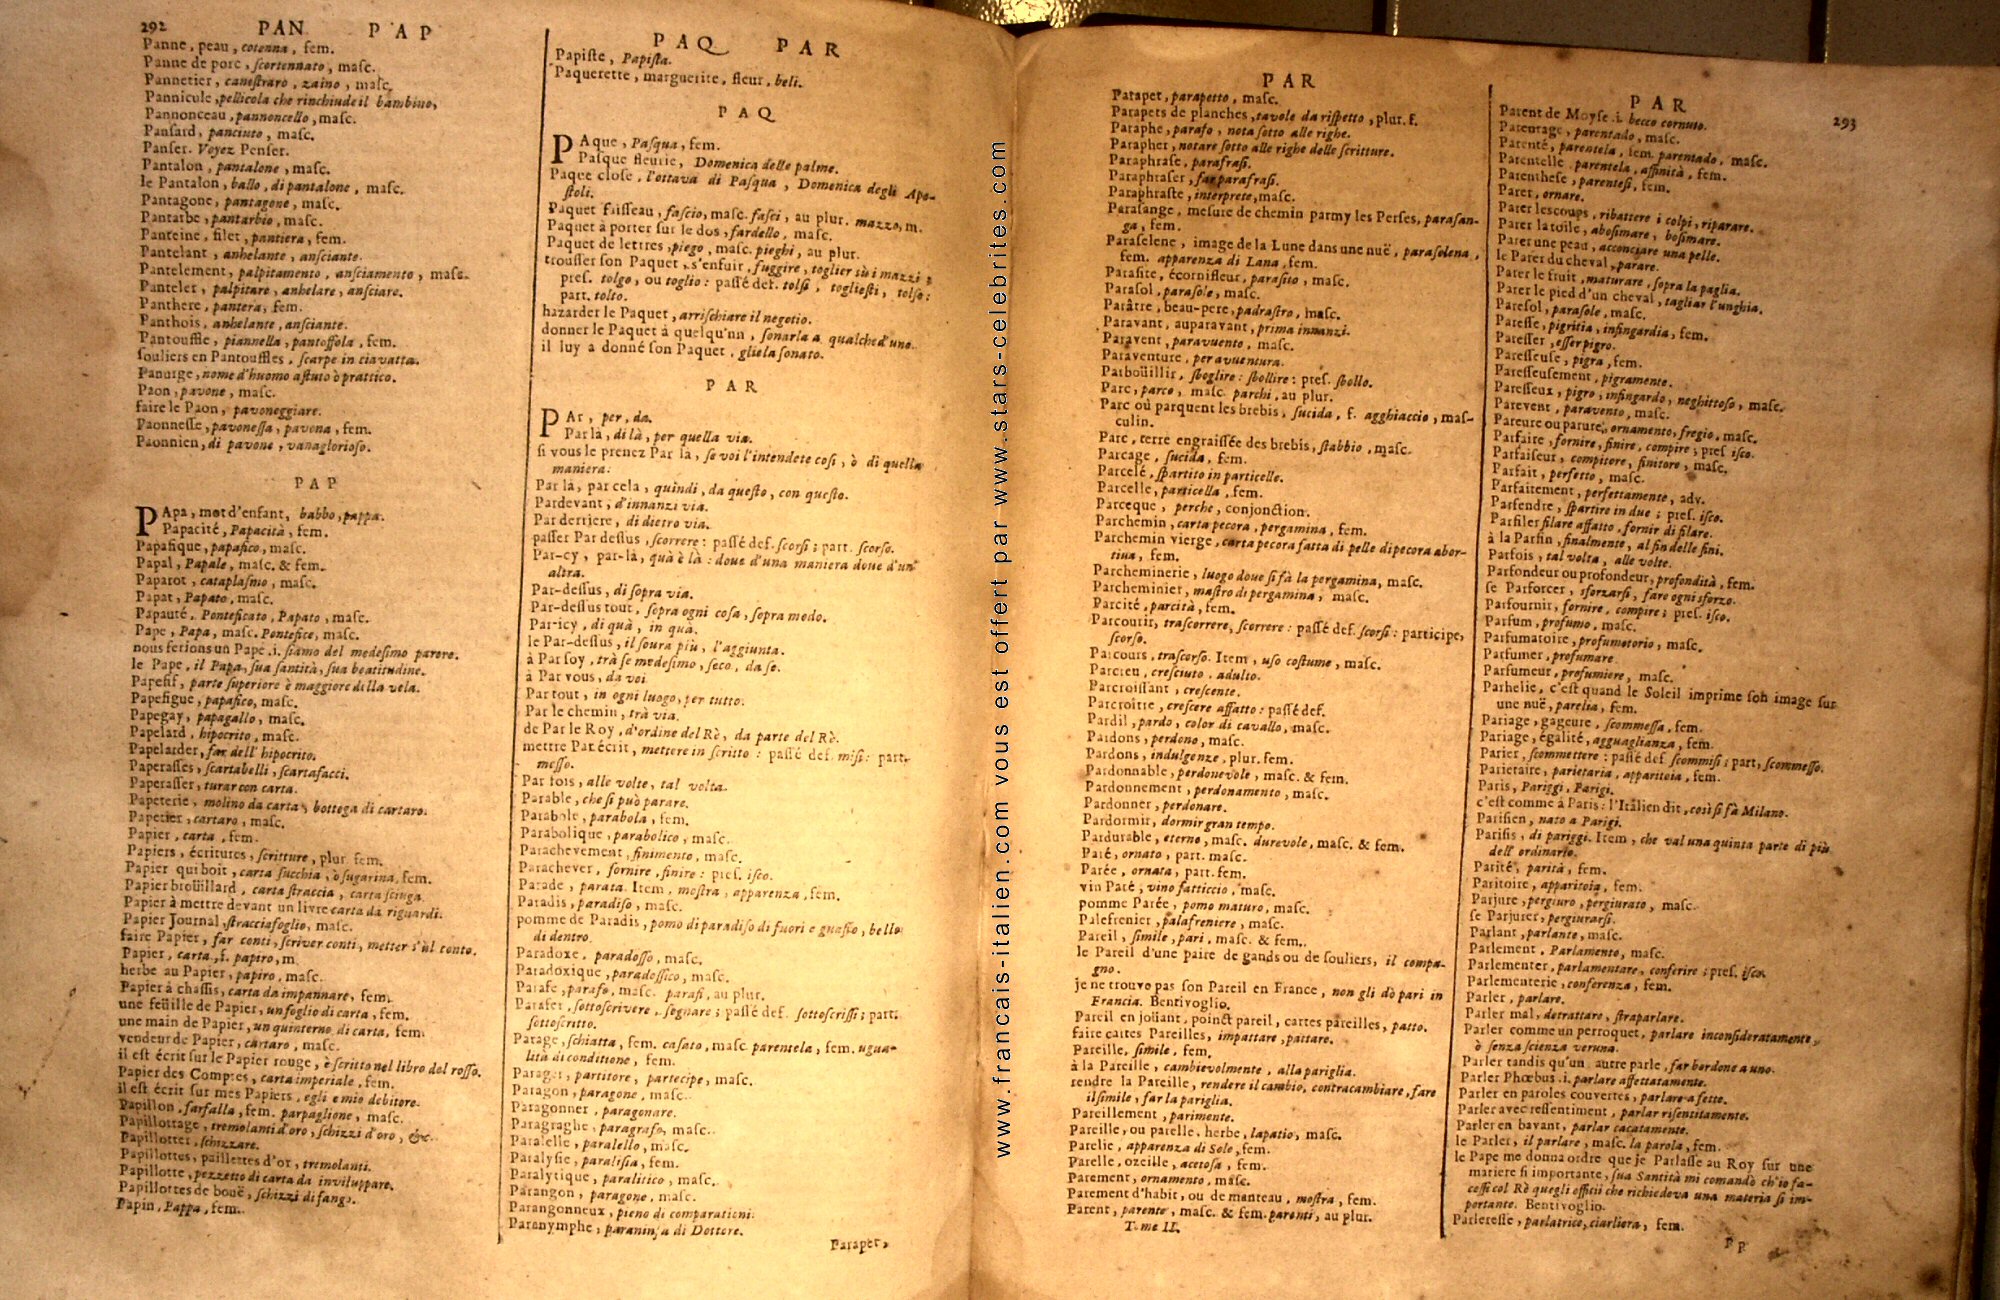 292 PAN PAP
Panne, peau, cotenna, fem.
Panne de porc, ſcortennato, maſc.
Pannetier, caneſtraro, zaino, maſc.
Pannicule, pellicola che rinchiude il bambino,
Pannonceau, pannoncello, maſc.
Panſard, panciuto, maſc.
Panſer. Voyez Penſer.
Pantalon, pantalone, maſc.
le Pantalon, ballo, di pantalone, maſc.
Pantagone, pantagone, maſc.
Pantarbe, pantarbio, maſc.
Panteine, filet, pantiera, fem.
Pantelant, anhelante, anſciante.
Pantelement, palpitamento, anſciamento, maſc.
Panteler, palpitare, anhelare, anſciare.
Panthere, pantera, fem.
Panthois, anhelante, anſciante.
Pantouffle, piannella, pantoffola, fem.
ſouliers en Pantouffles, ſcarpe in ciavatta.
Panurge, nome d'huomo aſtuto ò prattico.
Paon, pavone, maſc.
faire le Paon, pavoneggiare.
Paonneſſe, pavoneſſa, pavona, fem.
Paonnien, di pavone, vanaglorioſo.
PAP
PApa, mot d'enfant, babbo, pappa.
Papacité, Papacità, fem.
Papafique, papafico, maſc.
Papal, Papale, maſc. & fem.
Paparot, cataplaſmo, maſc.
Papat, Papato, maſc.
Papauté, Ponteficato, Papato, maſc.
Pape, Papa, maſc. Pontefice, maſc.
nous ferions un Pape .i. ſiamo del medeſimo parere.
le Pape, il Papa, ſua ſantità, ſua beatitudine.
Papefif, parte ſuperiore è maggiore di lla vela.
Papefigue, papafico, maſc.
Papegay, papagallo, maſc.
Papelard, hipocrito, maſc.
Papelarder, far dell' hipocrito.
Paperaſſes, ſcartabelli, ſcartafacci.
Paperaſſer, turar con carta.
Papeterie, molino da carta, bottega di cartaro.
Papetier, cartaro, maſc.
Papier, carta, fem.
Papiers, écritures, ſcritture, plur. fem.
Papier qui boit, carta ſucchia, ò ſugarina, fem.
Papier broüillard, carta ſtraccia, carta ſciuga.
Papier à mettre devant un livre carta da riguardi.
Papier Journal, ſtracciafoglio, maſc.
faire Papier, far conti, ſcriver conti, metter s'ùl conto.
Papier, carta, f. papiro, m.
herbe au Papier, papiro, maſc.
Papier à chaſſis, carta da impannare, fem.
une feüille de Papier, un foglio di carta, fem.
une main de Papier, un quinterno di carta, fem.
vendeur de Papier, cartaro, maſc.
il eſt écrit ſur le Papier rouge, è ſcritto nel libro del roſſo.
Papier des Comptes, carta imperiale, fem.
il eſt écrit ſur mes Papiers, egli e mio debitore.
Papillon, farfalla, fem. parpaglione, maſc.
Papillottage, tremolanti d'oro, ſchizzi d'oro, &c.
Papillotter, ſchizzare.
Papillottes, paillettes d'or, tremolanti.
Papillotte, pezzetto di carta da inviluppare.
Papillottes de bouë, ſchizzi di fango.
Papin, Pappa, fem.
PAQ PAR
Papiſte, Papiſta.
Paquerette, marguerite, fleur, beli.
PAQ
PAque, Paſqua, fem.
Paſque fleurie, Domenica delle palme.
Paque cloſe, l'ottava di Paſqua, Domenica degli Apo-
ſtoli.
Paquet faiſſeau, faſcio, maſc. faſci, au plur. mazzo, m.
Paquet à porter ſur le dos, fardello, maſc.
Paquet de lettres, piego, maſc. pieghi, au plur.
trouſſer ſon Paquet, s'enfuir, fuggire, toglier sù i mazzi;
preſ. tolgo, ou toglio: paſſé def. tolſi, toglieſti, tolſe:
part. tolto.
hazarder le Paquet, arriſchiare il negotio.
donner le Paquet à quelqu'un, ſonarla a qualched'uno.
il luy a donné ſon Paquet, gliela ſonato.
PAR
PAr, per, da.
Par là, di là, per quella via.
ſi vous le prenez Par là, ſe voi l'intendete coſi, ò di quella
maniera.
Par là, par cela, quindi, da queſto, con queſto.
Pardevant, d'innanzi via.
Par derriere, di dietro via.
paſſer Par deſſus, ſcorrere: paſſé def. ſcorſi; part. ſcorſo.
Par-cy, par-là, quà è là: doue d'una maniera doue d'un'
altra.
Par-deſſus, di ſopra via.
Par-deſſus tout, ſopra ogni coſa, ſopra modo.
Par-icy, di quà, in quà.
le Par-deſſus, il ſoura più, l'aggiunta.
à Par ſoy, trà ſe medeſimo, ſeco, da ſe.
à Par vous, da voi.
Par tout, in ogni luogo, per tutto.
Par le chemin, trà via.
de Par le Roy, d'ordine del Rè, da parte del Rè.
mettre Par écrit, mettere in ſcritto: paſſé def. miſi: part.
meſſo.
Par fois, alle volte, tal volta.
Parable, che ſi può parare.
Parabole, parabola, fem.
Parabolique, parabolico, maſc.
Parachevement, finimento, maſc.
Parachever, fornire, finire: preſ. iſco.
Parade, parata. Item, moſtra, apparenza, fem.
Paradis, paradiſo, maſc.
pomme de Paradis, pomo di paradiſo di fuori e guaſto, bello
di dentro.
Paradoxe, paradoſſo, maſc.
Paradoxique, paradoſſico, maſc.
Parafe, parafo, maſc. parafi, au plur.
Parafer, ſottoſcrivere, ſegnare; paſſé def. ſottoſcriſſi; part.
ſottoſcritto.
Parage, ſchiatta, fem. caſato, maſc. parentela, fem. ugua-
lità di conditione, fem.
Parager, partitore, partecipe, maſc.
Paragon, paragone, maſc.
Paragonner, paragonare.
Paragraghe, paragrafo, maſc.
Paralelle, paralello, maſc.
Paralyſie, paraliſia, fem.
Paralytique, paralitico, maſc.
Parangon, paragone, maſc.
Parangonneux, pieno di comparationi.
Paranymphe, paraninfa di Dottore.
Parapet,
www.francais-italien.com vous est offert par www.stars-celebrites.com
PAR
Parapet, parapetto, maſc.
Parapets de planches, tavole da riſpetto, plur. f.
Paraphe, parafo, nota ſotto alle righe.
Parapher, notare ſotto alle righe delle ſcritture.
Paraphraſe, parafraſi.
Paraphraſer, far parafraſi.
Paraphraſte, interprete, maſc.
Paraſange, meſure de chemin parmy les Perſes, paraſan-
ga, fem.
Paraſelene, image de la Lune dans une nuë, paraſolena,
fem. apparenza di Luna, fem.
Paraſite, écornifleur, paraſito, maſc.
Paraſol, paraſole, maſc.
Parâtre, beau-pere, padraſtro, maſc.
Paravant, auparavant, prima innanzi.
Paravent, paravuento, maſc.
Paraventure, per avuentura.
Parboüillir, sboglire: sbollire: preſ. sbollo.
Parc, parco, maſc. parchi, au plur.
Parc où parquent les brebis, ſucida, f. agghiaccio, maſ-
culin.
Parc, terre engraiſſée des brebis, ſtabbio, maſc.
Parcage, ſucida, fem.
Parcelé, ſpartito in particelle.
Parcelle, particella, fem.
Parceque, perche, conjonction.
Parchemin, carta pecora, pergamina, fem.
Parchemin vierge, carta pecora fatta di pelle di pecora abor-
tiua, fem.
Parcheminerie, luogo doue ſi fà la pergamina, maſc.
Parcheminier, maſtro di pergamina, maſc.
Parcité, parcità, fem.
Parcourir, traſcorrere, ſcorrere: paſſé def. ſcorſi: participe,
ſcorſo.
Parcours, traſcorſo. Item, uſo coſtume, maſc.
Parcreu, creſciuto, adulto.
Parcroiſſant, creſcente.
Parcroitre, creſcere affatto: paſſé def.
Pardil, pardo, color di cavallo, maſc.
Pardons, perdono, maſc.
Pardons, indulgenze, plur. fem.
Pardonnable, perdonevole, maſc. & fem.
Pardonnement, perdonamento, maſc.
Pardonner, perdonare.
Pardormir, dormir gran tempo.
Pardurable, eterno, maſc. durevole, maſc. & fem.
Paré, ornato, part. maſc.
Parée, ornata, part. fem.
vin Paré, vino fatticcio, maſc.
pomme Parée, pomo maturo, maſc.
Palefrenier, palafreniere, maſc.
Pareil, ſimile, pari, maſc. & fem.
le Pareil d'une paire de gands ou de ſouliers, il compa-
gno.
je ne trouve pas ſon Pareil en France, non gli dò pari in
Francia. Bentivoglio.
Pareil en joüant, poinct pareil, cartes pareilles, patto.
faire cartes Pareilles, impattare, pattare.
Pareille, ſimile, fem.
à la Pareille, cambievolmente, alla pariglia.
rendre la Pareille, rendere il cambio, contracambiare, fare
il ſimile, far la pariglia.
Pareillement, parimente.
Pareille, ou parelle, herbe, lapatio, maſc.
Parelie, apparenza di Sole, fem.
Parelle, ozeille, acetoſa, fem.
Parement, ornamento, maſc.
Parement d'habit, ou de manteau, moſtra, fem.
Parent, parente, maſc. & fem. parenti, au plur.
Tome II.
PAR 293
Parent de Moyſe .i. becco cornuto.
Parentage, parentado, maſc.
Parenté, parentela, fem. parentado, maſc.
Parentelle, parentela, affinità, fem.
Parentheſe, parenteſi, fem.
Parer, ornare.
Parer les coups, ribattere i colpi, riparare.
Parer la toile, aboſimare, boſimare.
Parer une peau, acconciare una pelle.
le Parer du cheval, parare.
Parer le fruit, maturare, ſopra la paglia.
Parer le pied d'un cheval, tagliar l'unghia.
Pareſol, paraſole, maſc.
Pareſſe, pigritia, infingardia, fem.
Pareſſer, eſſer pigro.
Pareſſeuſe, pigra, fem.
Pareſſeuſement, pigramente.
Pareſſeux, pigro, infingardo, neghittoſo, maſc.
Parevent, paravento, maſc.
Pareure ou parure, ornamento, fregio, maſc.
Parfaire, fornire, finire, compire; preſ. iſco.
Parfaiſeur, compitore, finitore, maſc.
Parfait, perfetto, maſc.
Parfaitement, perfettamente, adv.
Parfendre, ſpartire in due; preſ. iſco.
Parfiler filare affatto, fornir di filare.
à la Parfin, finalmente, al fin delle fini.
Parfois, tal volta, alle volte.
Parfondeur ou profondeur, profondità, fem.
ſe Parforcer, sforzarſi, fare ogni sforzo.
Parfournir, fornire, compire; preſ. iſco.
Parfum, profumo, maſc.
Parfumatoire, profumotorio, maſc.
Parfumer, profumare.
Parfumeur, profumiere, maſc.
Parhelie, c'eſt quand le Soleil imprime ſon image ſur
une nuë, parelia, fem.
Pariage, gageure, ſcommeſſa, fem.
Pariage, égalité, agguaglianza, fem.
Parier, ſcommettere: paſſé def ſcommiſi; part, ſcommeſſo.
Parietaire, parietaria, apparitoia, fem.
Paris, Pariggi, Parigi.
c'eſt comme à Paris: l'Italien dit, coſi ſi fà Milano.
Pariſien, nato a Parigi.
Pariſis, di pariggi. Item, che val una quinta parte di più
dell' ordinario.
Parité, parità, fem.
Paritoire, apparitoia, fem.
Parjure, pergiuro, pergiurato, maſc.
ſe Parjurer, pergiurarſi.
Parlant, parlante, maſc.
Parlement, Parlamento, maſc.
Parlementer, parlamentare, conferire; preſ. iſco.
Parlementerie, conferenza, fem.
Parler, parlare.
Parler mal, detrattare, ſtraparlare.
Parler comme un perroquet, parlare inconſideratamente,
ò ſenza ſcienza veruna.
Parler tandis qu'un autre parle, far bordone a uno.
Parler Phœbus .i. parlare affettatamente.
Parler en paroles couvertes, parlare a fette.
Parler avec reſſentiment, parlar riſentitamente.
Parler en bavant, parlar cacatamente.
le Parler, il parlare, maſc. la parola, fem.
le Pape me donna ordre que je Parlaſſe au Roy ſur une
matiere ſi importante, ſua Santità mi comandò ch'io fa-
ceſſi col Rè quegli offitii che richiedeva una materia ſi im-
portante. Bentivoglio.
Parlereſſe, parlatrice, ciarliera, fem.
PP